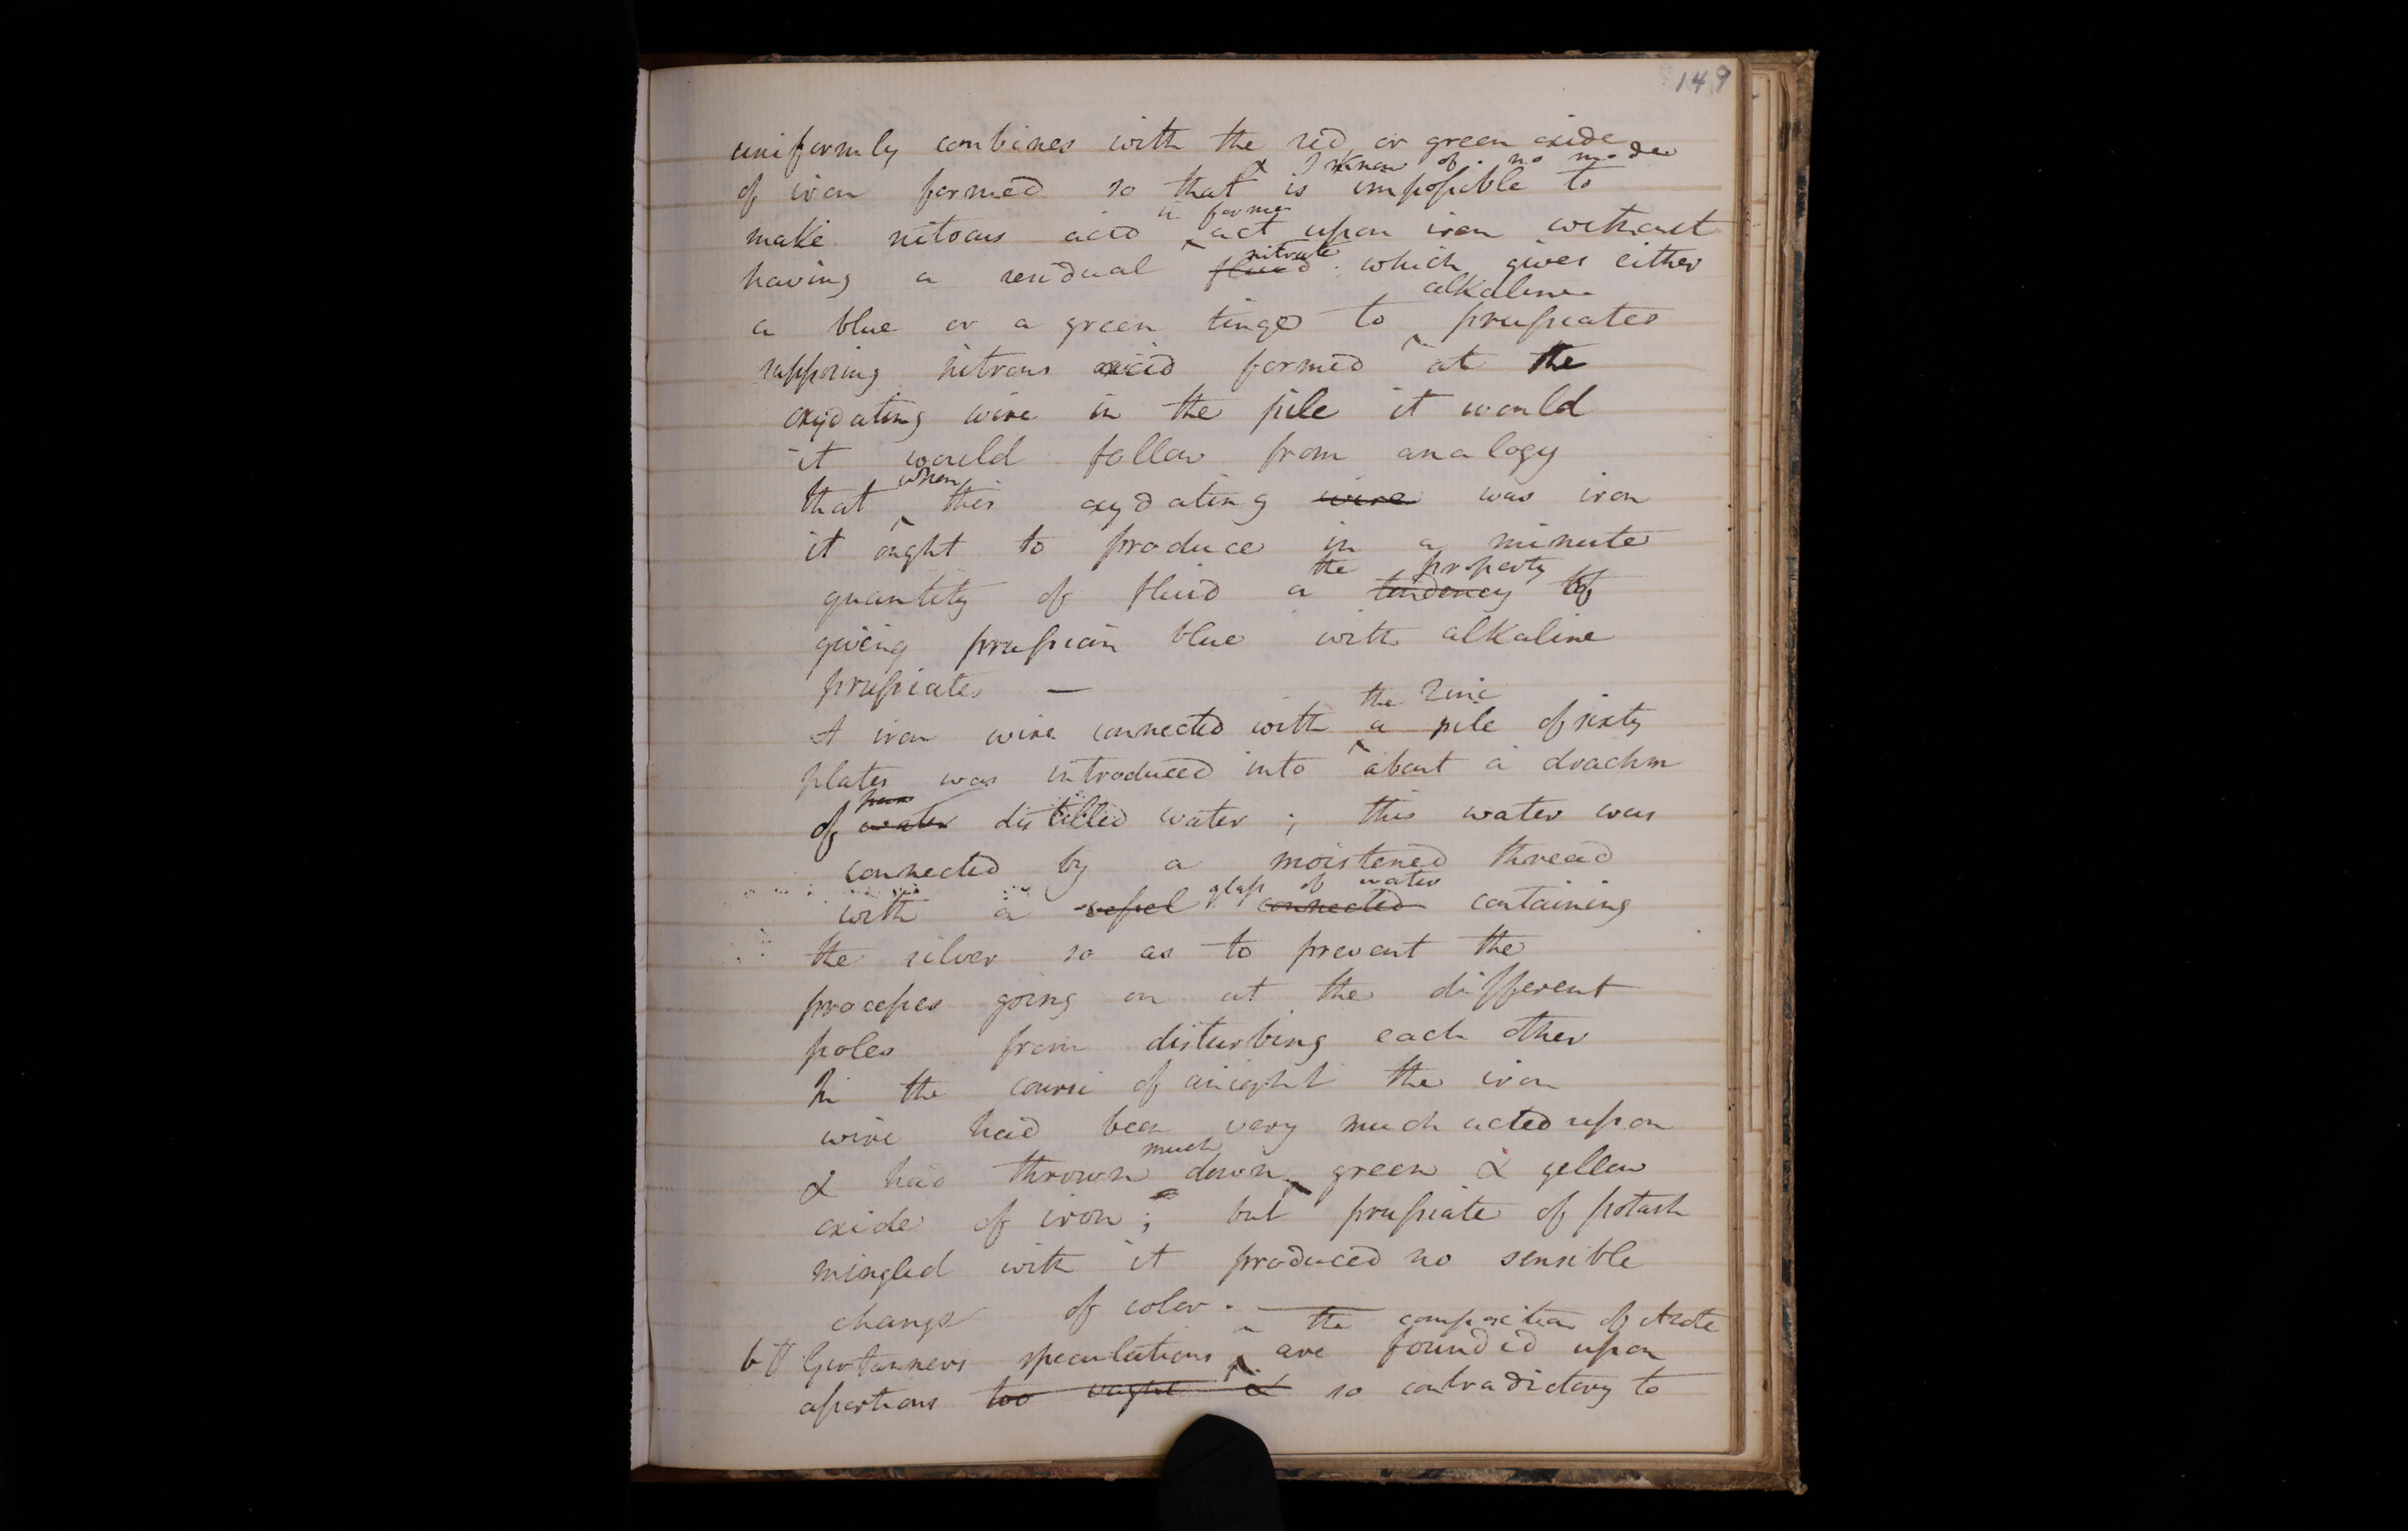 149
uniformly combines with the red or green oxide
& I know of no mode
of iron formed so that is impossible to
in forming
make nitrous acid act upon iron without
nitrate
having a residual fluid which gives either
alkaline
a blue or a green tinge to prussiates
supposing nitrous acid formed at the
oxydating wire in the pile it would
it would follow from analogy
when
that this oxydating wire was iron
it ought to produce in a minute
the property
quantity of fluid a tendency of
giving prussian blue with alkaline
prussiates —
the Zinc
A iron wire connected with a pile of sixty
plates was introduced into about a drachm
pure
of water distilled water; this water was
connected by a moistened thread
glass of water
with a vessel connected containing
the silver so as to prevent the
processes going on at the different
poles from disturbing each other
In the course of a night the iron
wire had been very much acted upon
much
& had thrown down green & yellow
oxide of iron; but prussiate of potash
mingled with it produced no sensible
change of color. —
on the composition of Azote
Girtanners speculations are founded upon
assertions too vague & so contradictory to